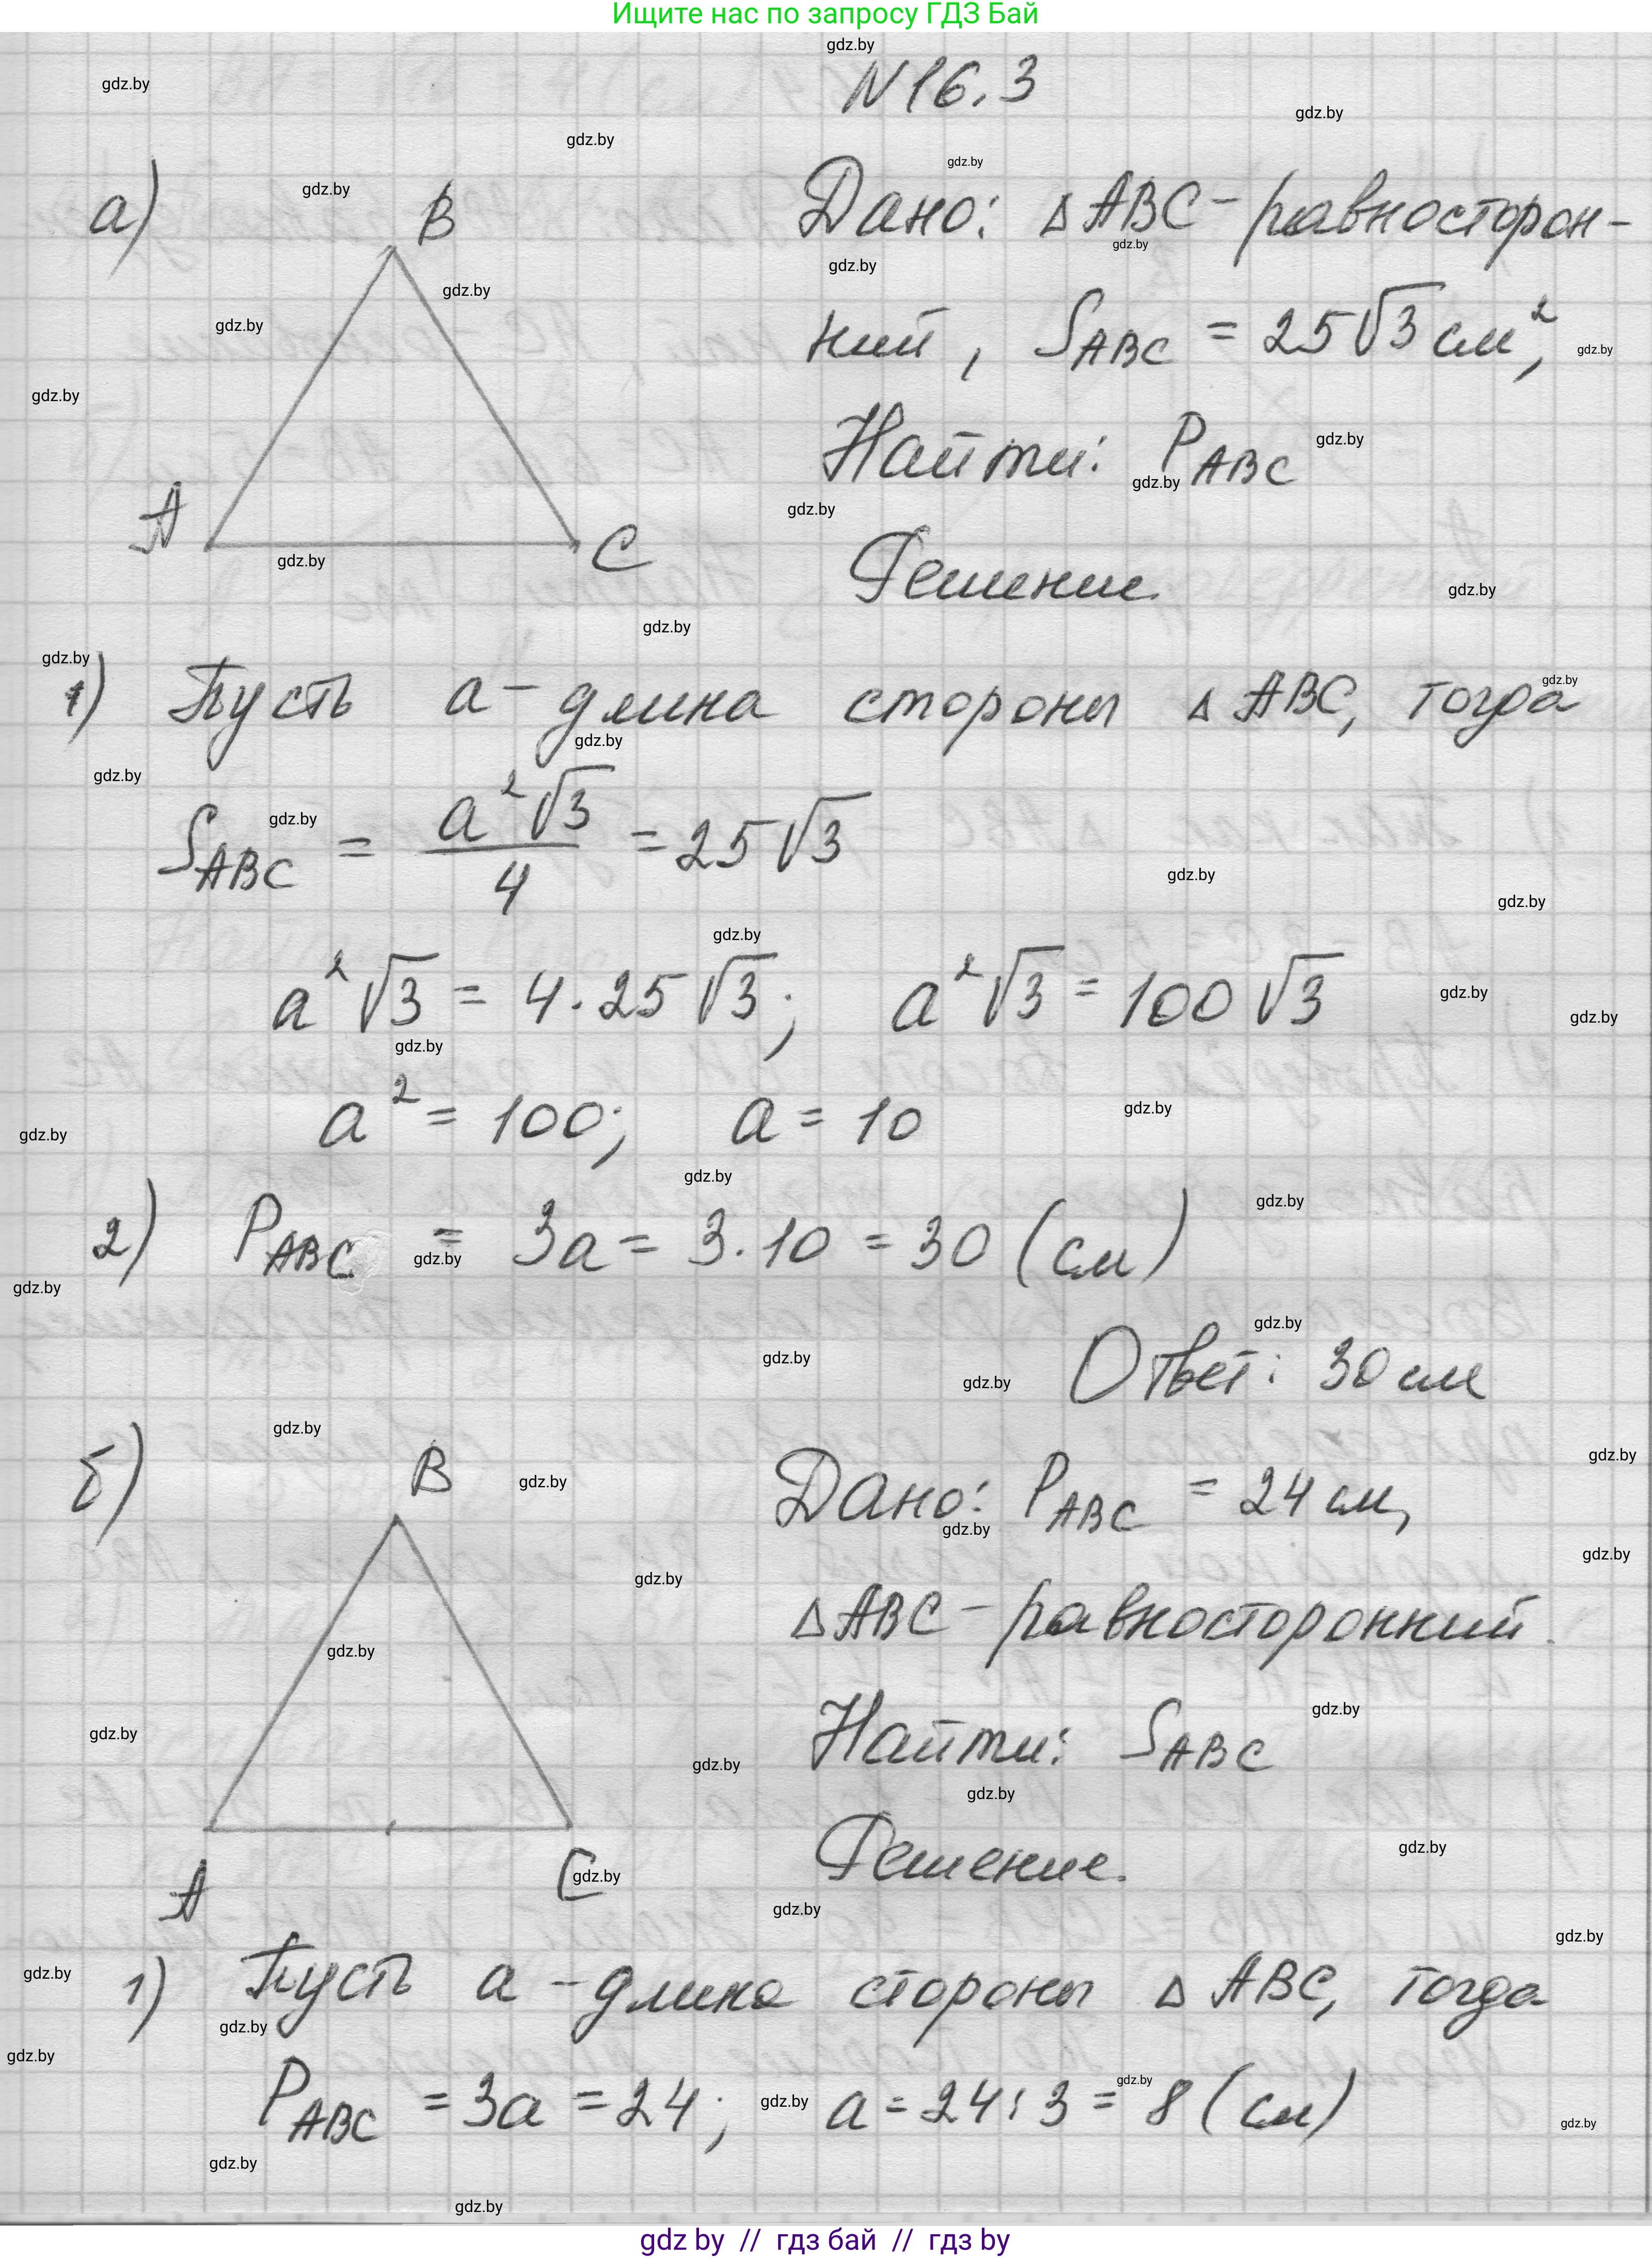 Ищите нас по запросу ГДЗ Бай
N 16.3
а)
B
A
C
Дано: △ABC - равносторон-
ний, S_ABC = 25√3 см²,
Найти: P_ABC
Решение.
1) Пусть a - длина стороны △ABC, тогда
S_ABC = a²√3/4 = 25√3
a²√3 = 4·25√3; a²√3 = 100√3
a² = 100; a = 10
2) P_ABC = 3a = 3·10 = 30 (см)
Ответ: 30 см
б)
B
A
C
Дано: P_ABC = 24 см,
△ABC - равносторонний.
Найти: S_ABC
Решение.
1) Пусть a - длина стороны △ABC, тогда
P_ABC = 3a = 24; a = 24:3 = 8 (см)
gdz by // гдз бай // гдз by